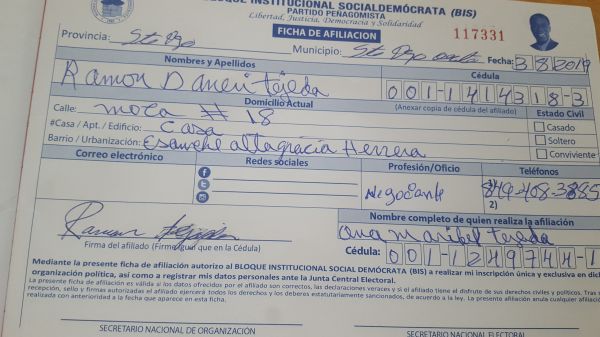 BLOQUE INSTITUCIONAL SOCIALDEMÓCRATA (BIS)
PARTIDO PEÑAGOMISTA
Libertad, Justicia, Democracia y Solidaridad
FICHA DE AFILIACION
117331
Provincia: Sto Dgo
Municipio: Sto Dgo oeste
Fecha: 3/8/2019
Nombres y Apellidos
Cédula
Ramon Daneri tejeda
001-1414318-3
Domicilio Actual
(Anexar copia de cédula del afiliado)
Estado Civil
Calle: moca # 18
#Casa / Apt. / Edificio: Casa
Casado
Barrio / Urbanización: Ensanche altagracia Herrera
Soltero
Conviviente
Correo electrónico
Redes sociales
Profesión/Oficio
Teléfonos
Negociante
1) 849-408-3885
2)
Nombre completo de quien realiza la afiliación
Ramon Tejeda
ana maribel tejada
Firma del afiliado (Firme igual que en la Cédula)
Cédula: 001-1249744-1
Mediante la presente ficha de afiliación autorizo al BLOQUE INSTITUCIONAL SOCIAL DEMÓCRATA (BIS) a realizar mi inscripción única y exclusiva en dich
organización política, así como a registrar mis datos personales ante la Junta Central Electoral.
La presente ficha de afiliación es válida si los datos ofrecidos por el afiliado son correctos, las declaraciones veraces y si el afiliado tiene el disfrute de sus derechos civiles y políticos. Tras s
recepción, sello y firmas autorizadas el afiliado ejercerá todos los derechos y los deberes estatutariamente sancionados, de acuerdo a la ley. La presente afiliación anula cualquier afiliació
realizada con anterioridad a la fecha que aparece en esta ficha.
SECRETARIO NACIONAL DE ORGANIZACIÓN
SECRETARIO NACIONAL ELECTORAL